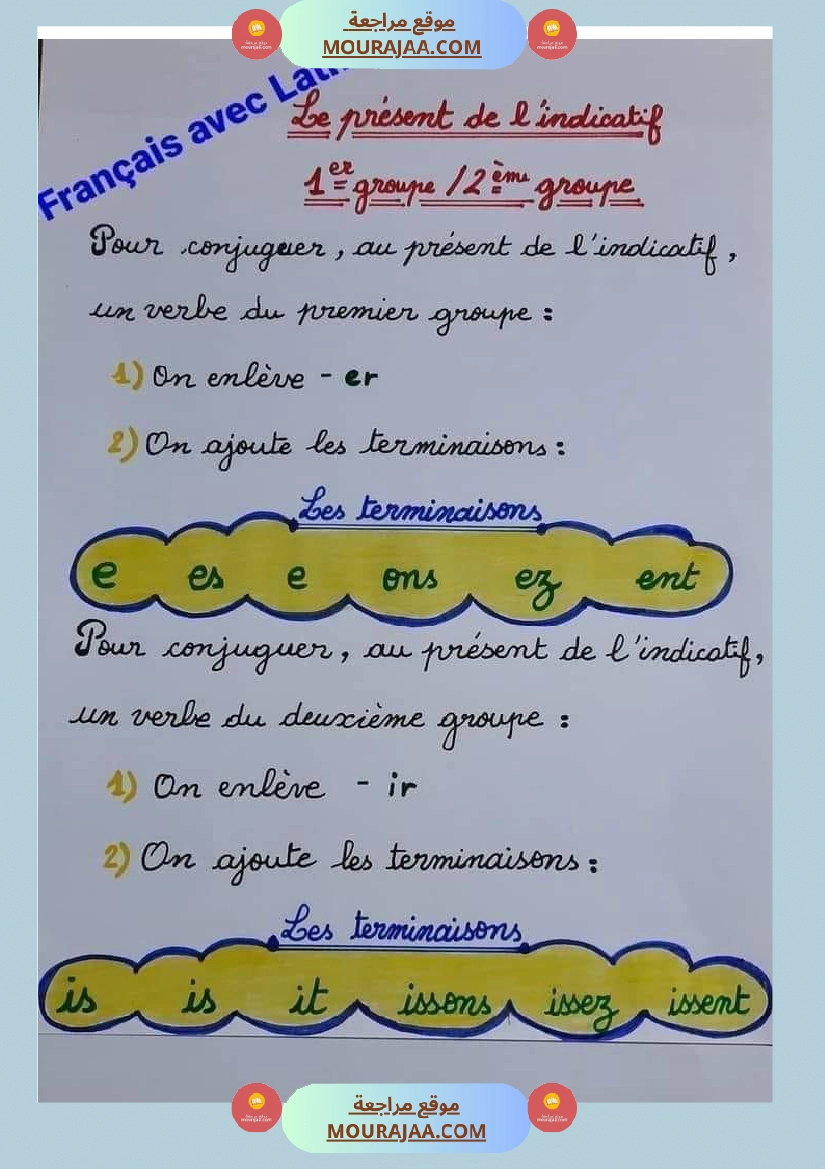 موقع مراجعة
MOURAJAA.COM
Français avec
Le présent de l'indicatif
1er groupe / 2ème groupe
Pour conjuguer, au présent de l'indicatif,
un verbe du premier groupe :
1) On enlève - er
2) On ajoute les terminaisons :
Les terminaisons
e es e ons ez ent
Pour conjuguer, au présent de l'indicatif,
un verbe du deuxième groupe :
1) On enlève - ir
2) On ajoute les terminaisons :
Les terminaisons
is is it issons issez issent
موقع مراجعة
MOURAJAA.COM